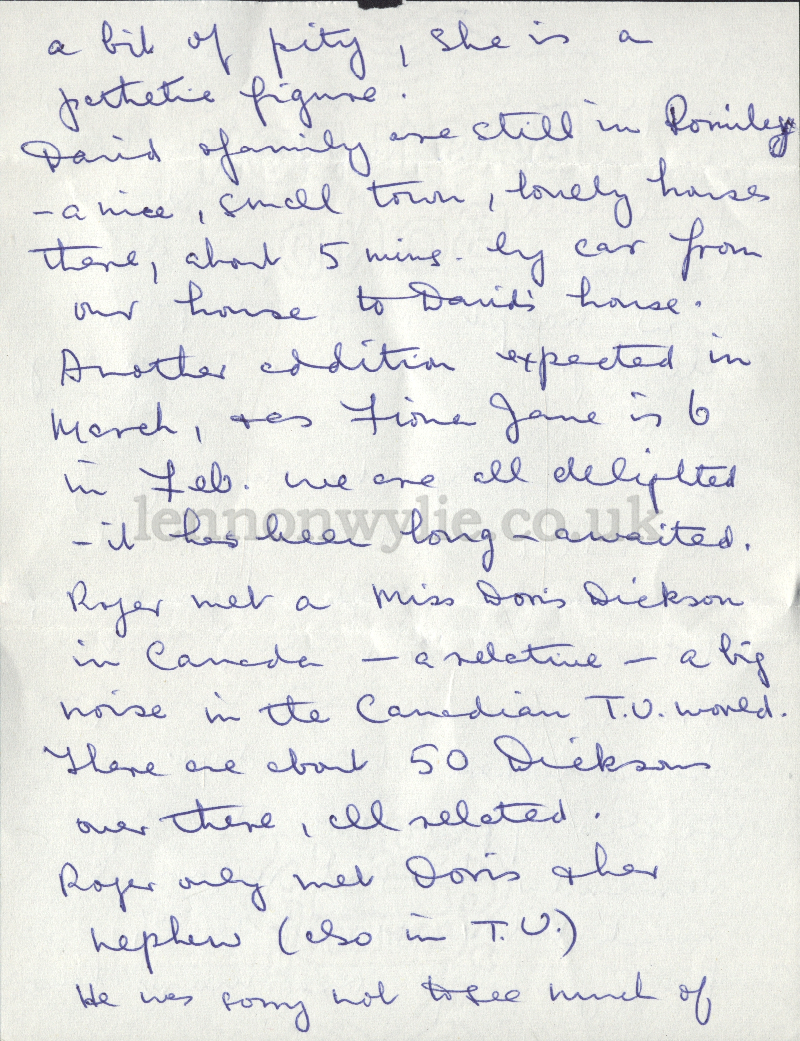 a bit of pity, she is a
pathetic figure.
David & family are still in Romiley
- a nice, small town, lovely houses
there, about 5 mins. by car from
our house to David's house.
Another addition expected in
March, & as Fiona Jane is 6
in Feb. we are all delighted
- it has been long-awaited.
lennonwylie.co.uk
Roger met a Miss Doris Dickson
in Canada - a relative - a big
noise in the Canadian T.V. world.
There are about 50 Dicksons
over there, all related.
Roger only met Doris & her
nephew (also in T.V.)
He was sorry not to see much of